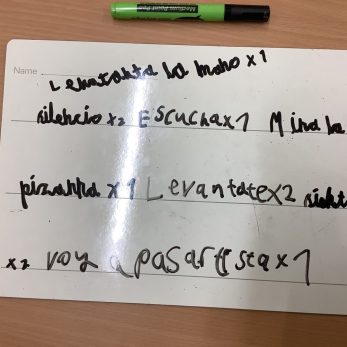 Medium Point Pen
Name
Levantanta la mano x 1
silencio x2 Escucha x1 Mira la
pizarra x 1 Levantate x2
x2 voy a pasar lista x1